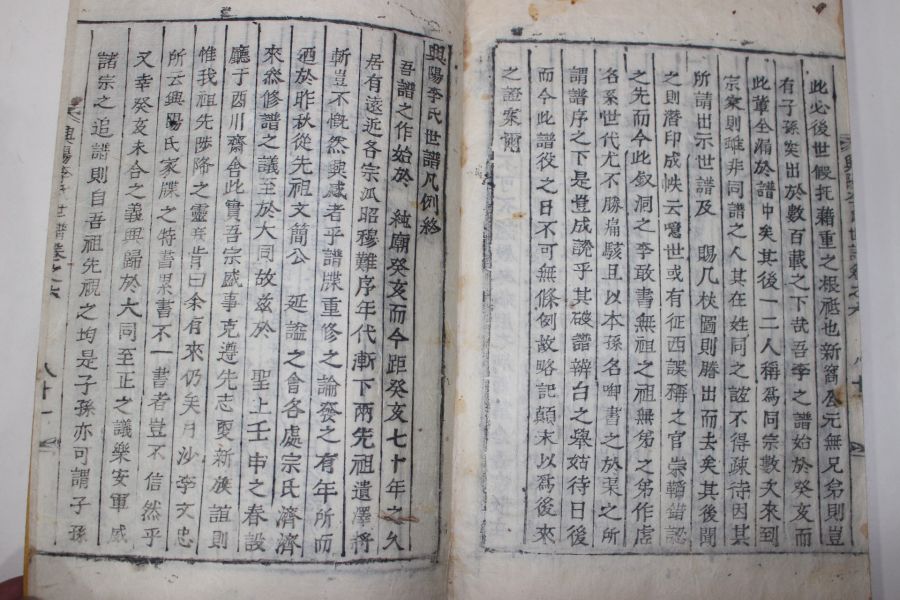 此必後世假托藉重之根祗也新窩公元無兄弟則豈
有子孫突出於數百載之下哉吾李之譜始於癸亥而
此輩全漏於譜中矣其後一二人稱爲同宗數次來到
宗家則雖非同譜之人其在姓同之誼不得疎待因其
所請出示世譜及 賜几杖圖則謄出而去矣其後聞
之則潛印成帙云噫世或有征西誤稱之官崇韜錯認
之先而今此叙洞之李敢書無祖之祖無弟之弟作虛
名系世代尤不勝痛駭且以本孫名啣書之於渠之所
謂譜序之下是豈成說乎其破譜辨白之擧姑待日後
而今此譜役之日不可無條例故略記顛末以爲後來
之證案爾
興陽李氏世譜凡例終
吾譜之作始於 純廟癸亥而今距癸亥七十年之久
居有遠近各宗派昭穆難序年代漸下兩先祖遺澤將
斬豈不慨然興感者乎譜牒重修之論發之有年所而
迺於昨秋從先祖文簡公 延謚之會各處宗氏濟濟
來叅修譜之議至於大同故玆於 聖上壬申之春設
廳于酉川齋舍此實吾宗盛事克遵先志更新族誼則
惟我祖先陟降之靈其肯曰余有來仍矣月沙李文忠
所云興陽氏家牒之特書累書不一書者豈不信然乎
又幸癸亥未合之義興歸於大同至正之議樂安軍威
諸宗之追譜則自吾祖先視之均是子孫亦可謂子孫
興陽李氏世譜卷之六
八十一